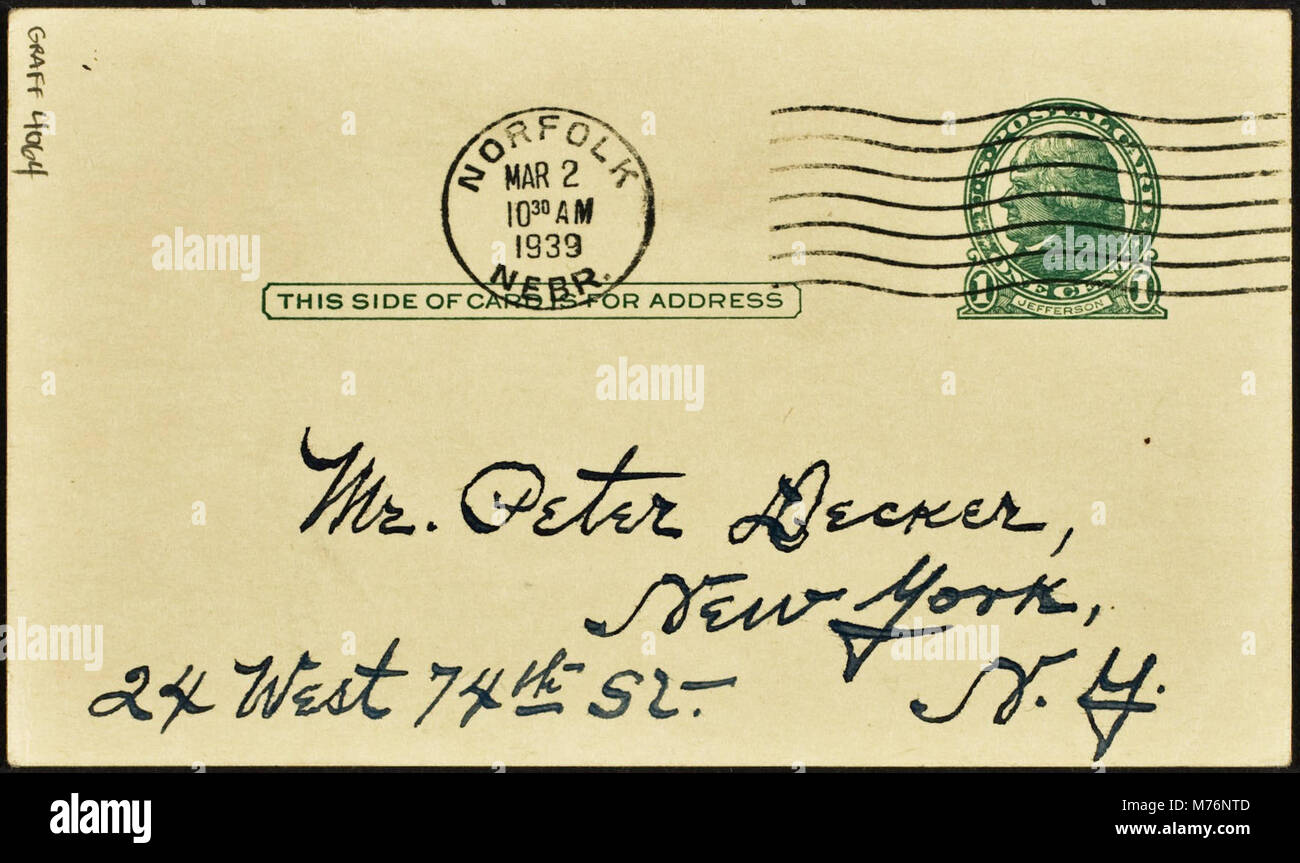 GRAFF 4064
NORFOLK
MAR 2
10³⁰ AM
1939
NEBR.
U·S·POSTAL CARD
1 CENT 1
JEFFERSON
THIS SIDE OF CARD IS FOR ADDRESS
Mr. Peter Decker,
New York,
24 West 74th St.
N. Y.
alamy
a
alamy
Image ID: M76NTD
www.alamy.com